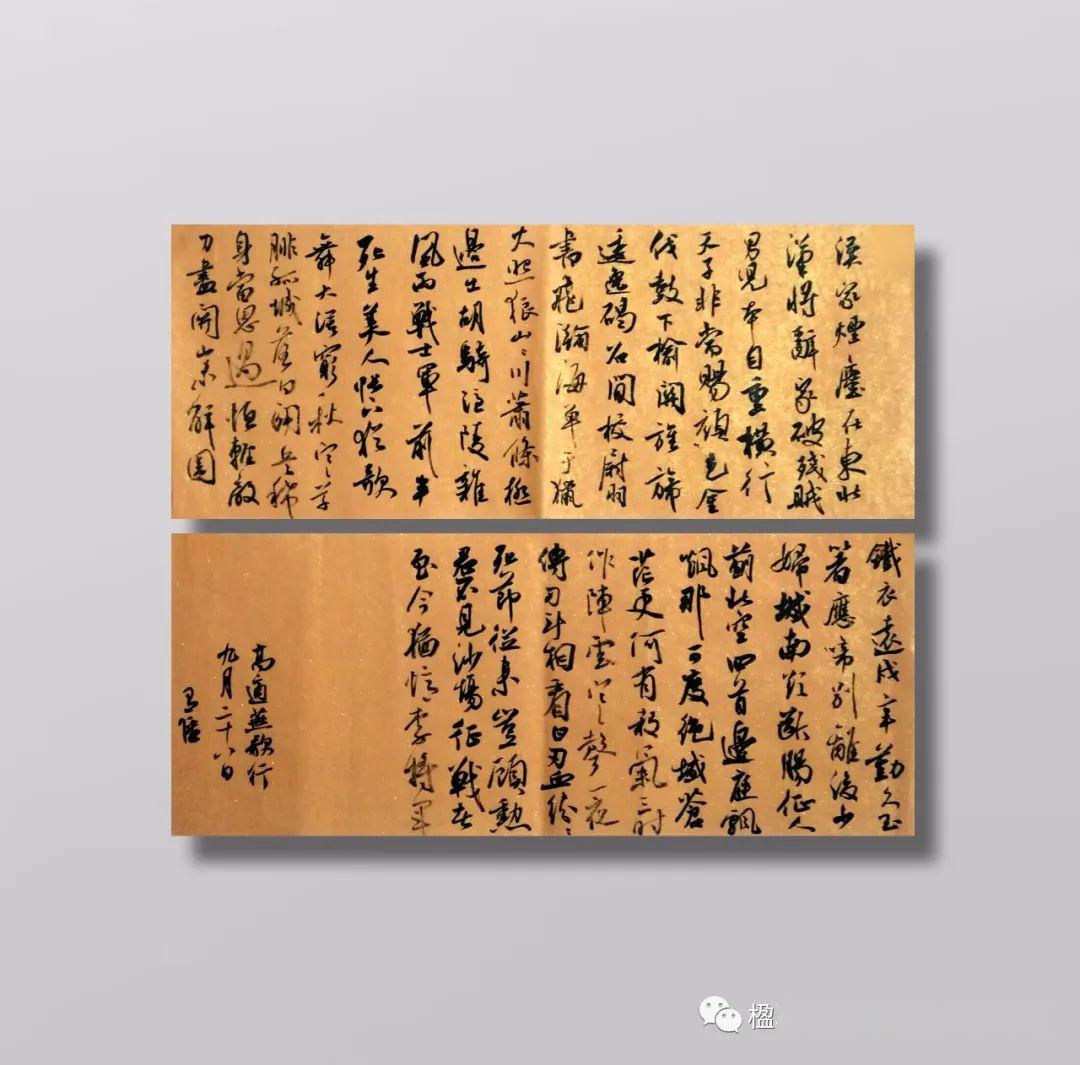 漢家煙塵在東北
漢將辭家破殘賊
男兒本自重橫行
天子非常賜顏色金
伐鼓下榆關旌旆
逶迤碣石間校尉羽
書飛瀚海單于獵
火照狼山〻川蕭條極
邊土胡騎憑陵雜
風雨戰士軍前半
死生美人帳下猶歌
舞大漠窮秋塞草
腓孤城落日鬥兵稀
身當恩遇恒輕敵
力盡關山未解圍
鐵衣遠戍辛勤久玉
箸應啼別離後少
婦城南欲斷腸征人
薊北空回首邊庭飄
颻那可度絕域蒼
茫更何有殺氣三時
作陣雲寒聲一夜
傳刁斗相看白刃血紛〻
死節從來豈顧勳
君不見沙場征戰苦
至今猶憶李將軍
高適燕歌行
九月二十八日
楹